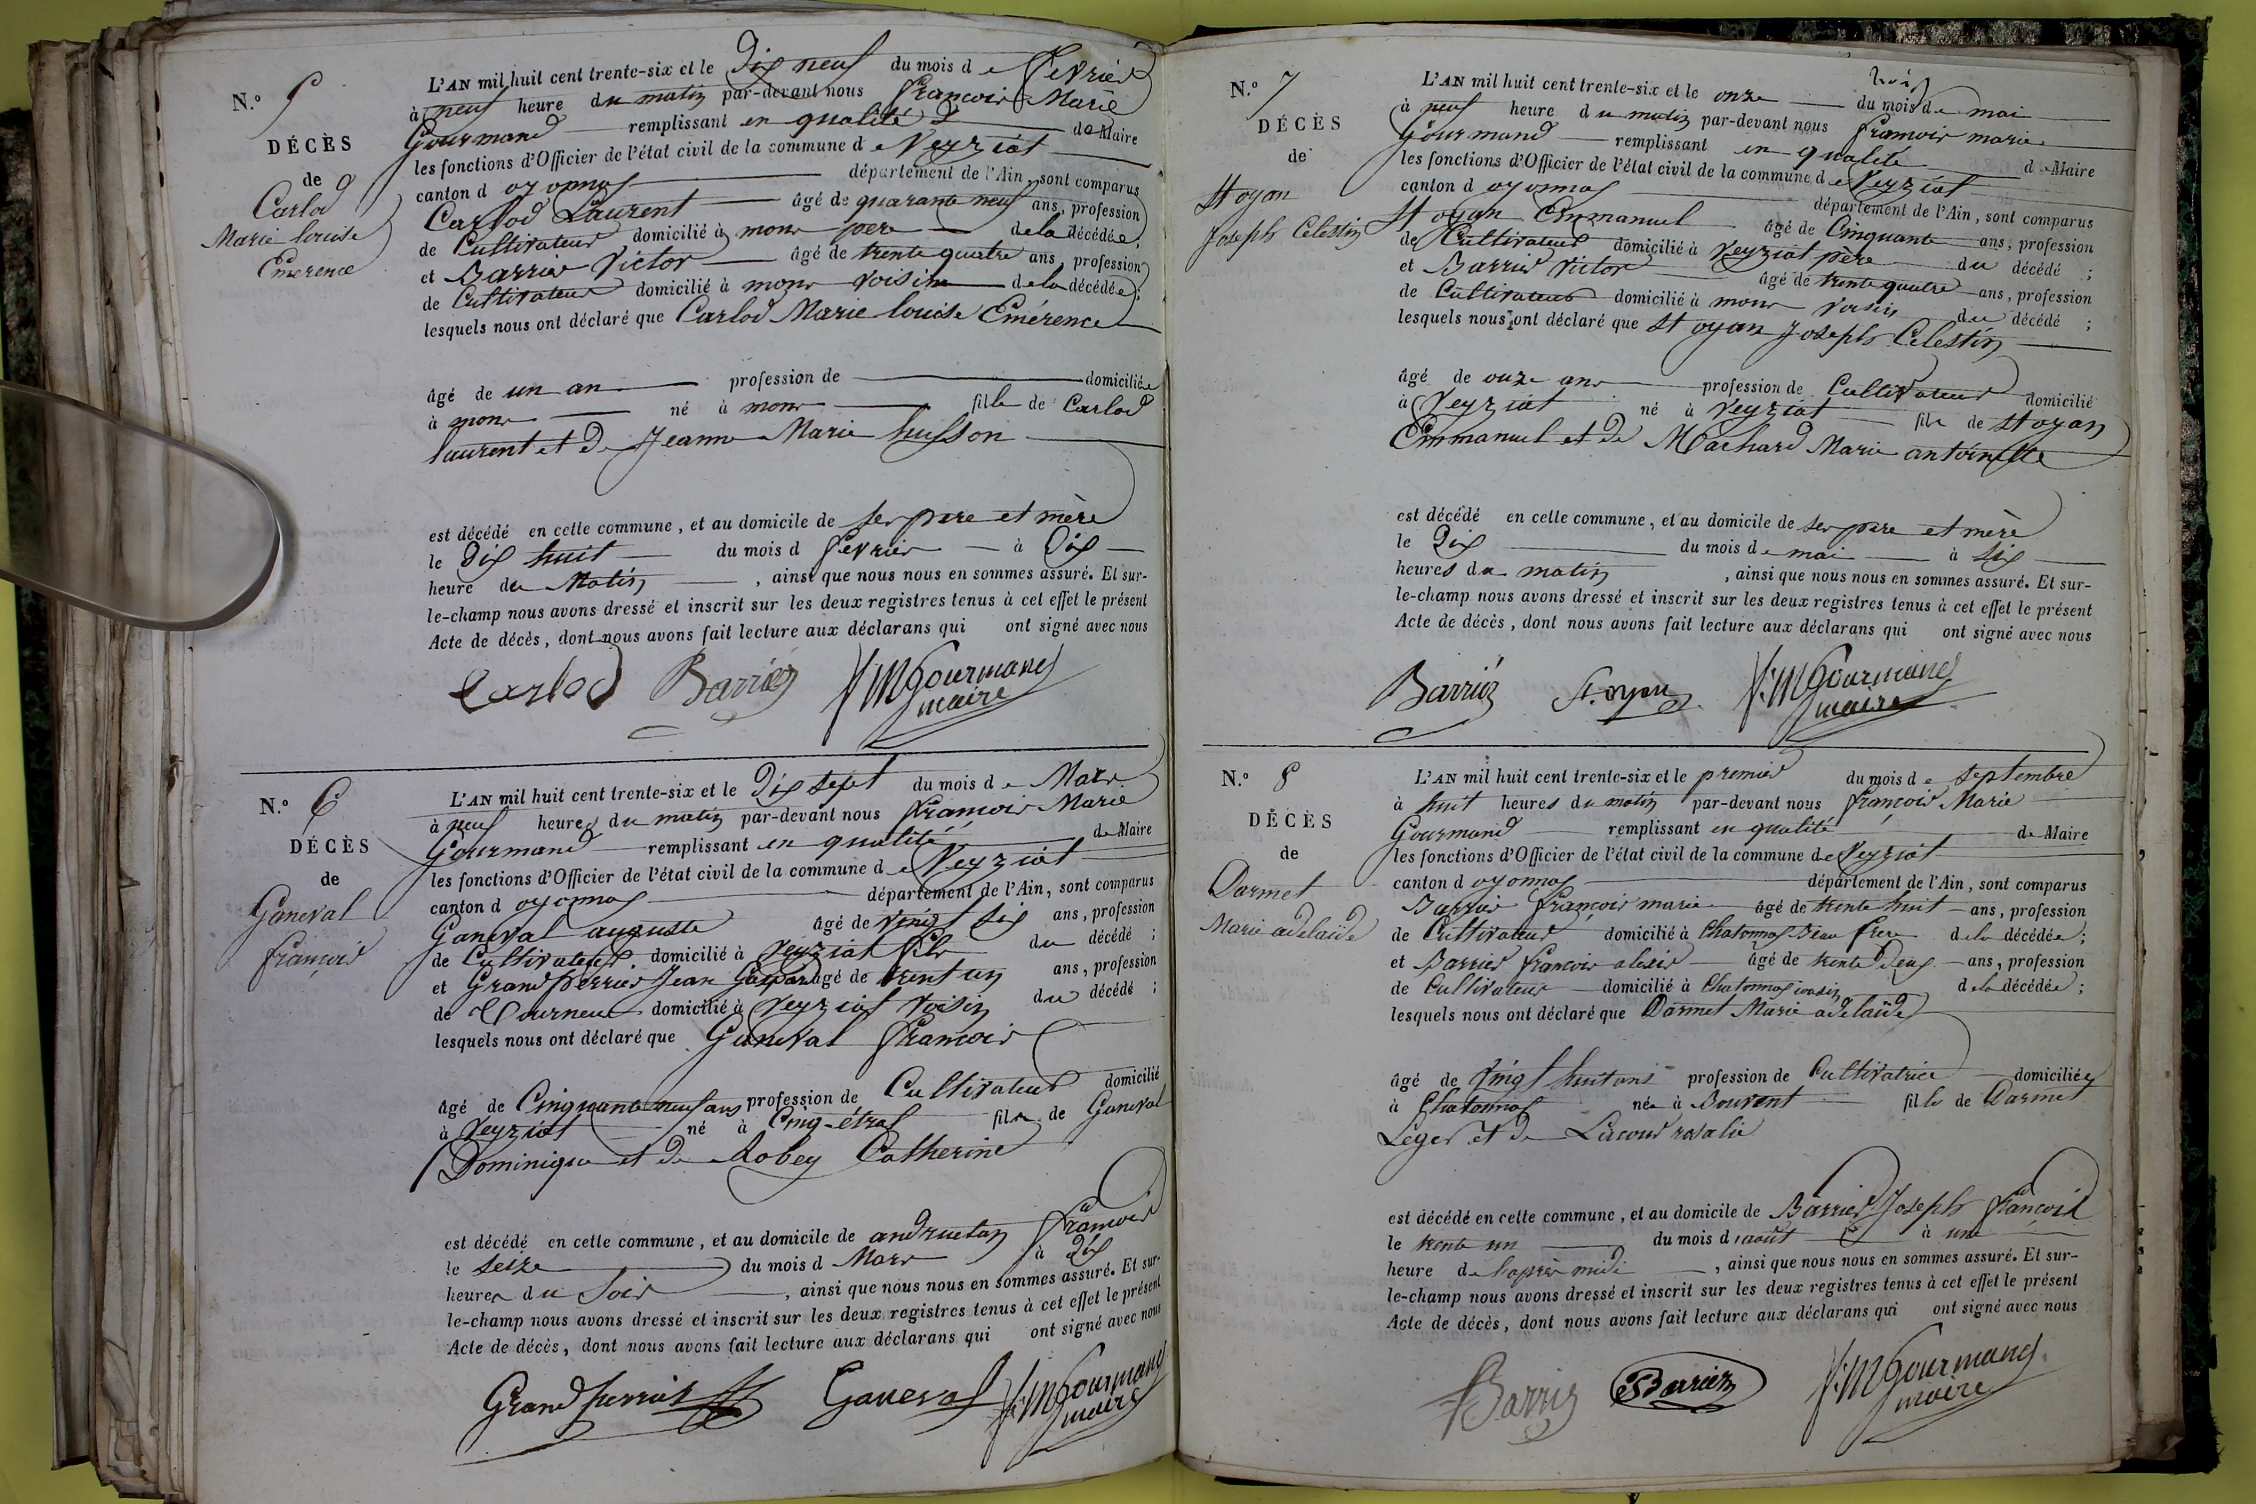 N.º 5
DÉCÈS
de
Carlod
Marie louise
Emérence
L'AN mil huit cent trente-six et le Dix neuf du mois de février
à neuf heure du matin par-devant nous françois Marie
Gourmand remplissant en qualité de Maire
les fonctions d'Officier de l'état civil de la commune de Veyziat
canton d oyonnas département de l'Ain, sont comparus
Carlod Laurent âgé de quarante neuf ans, profession
de Cultivateur domicilié à mons pere de la décédée;
et Barrier Victor âgé de trente quatre ans, profession
de Cultivateur domicilié à mons voisin de la décédée;
lesquels nous ont déclaré que Carlod Marie louise Emérence
âgé de un an profession de domiciliée
à mons né à mons fille de Carlod
laurent et de Jeanne Marie husson
est décédé en cette commune, et au domicile de ses pere et mère
le Dix huit du mois d février à Dix
heure du Matin, ainsi que nous nous en sommes assuré. Et sur-
le-champ nous avons dressé et inscrit sur les deux registres tenus à cet effet le présent
Acte de décès, dont nous avons fait lecture aux déclarans qui ont signé avec nous
Carlod Barrier f: M Gourmand
maire
N.º 6
DÉCÈS
de
Ganeval
françois
L'AN mil huit cent trente-six et le Dix sept du mois de Mars
à neuf heures du matin par-devant nous françois Marie
Gourmand remplissant en qualité de Maire
les fonctions d'Officier de l'état civil de la commune de Veyziat
canton d oyonnas département de l'Ain, sont comparus
Ganeval auguste âgé de vingt six ans, profession
de Cultivateur domicilié à veyziat fils du décédé;
et Grandperrier Jean Gaspard âgé de trent un ans, profession
de Tourneur domicilié à Veyziat Voisin du décédé;
lesquels nous ont déclaré que Ganeval françois
âgé de Cinquante neuf ans profession de Cultivateur domicilié
à Veyziat né à Cinq-étral fils de Ganeval
Dominique et de Robey Catherine
est décédé en cette commune, et au domicile de andruetan françois
le seize du mois d Mars à Dix
heures du soir, ainsi que nous nous en sommes assuré. Et sur-
le-champ nous avons dressé et inscrit sur les deux registres tenus à cet effet le présent
Acte de décès, dont nous avons fait lecture aux déclarans qui ont signé avec nous
Grandperrier Ganeval f: M Gourmand
maire
N.º 7
DÉCÈS
de
St oyan
Joseph Celestin
L'AN mil huit cent trente-six et le onze du mois de mai
à neuf heure du matin par-devant nous françois marie
Gourmand remplissant en qualité de Maire
les fonctions d'Officier de l'état civil de la commune de Veyziat
canton d oyonnas département de l'Ain, sont comparus
St oyan Emmanuel âgé de Cinquante ans, profession
de Cultivateur domicilié à Veyziat père du décédé;
et Barrier Victor âgé de trente quatre ans, profession
de Cultivateur domicilié à mons voisin du décédé;
lesquels nous ont déclaré que St oyan Joseph Celestin
âgé de onze ans profession de Cultivateur domicilié
à Veyziat né à Veyziat fils de St oyan
Emmanuel et de Machard Marie antoinette
est décédé en cette commune, et au domicile de ses pere et mère
le Dix du mois de mai à six
heures du matin, ainsi que nous nous en sommes assuré. Et sur-
le-champ nous avons dressé et inscrit sur les deux registres tenus à cet effet le présent
Acte de décès, dont nous avons fait lecture aux déclarans qui ont signé avec nous
Barrier St. oyan f: M Gourmand
maire
N.º 8
DÉCÈS
de
Darmet
Marie adelaide
L'AN mil huit cent trente-six et le premier du mois de septembre
à huit heures du matin par-devant nous françois Marie
Gourmand remplissant en qualité de Maire
les fonctions d'Officier de l'état civil de la commune de Veyziat
canton d oyonnas département de l'Ain, sont comparus
Barrier françois marie âgé de trente huit ans, profession
de Cultivateur domicilié à Chatonnas Beau frere de la décédée;
et Barrier françois alexis âgé de trente Deux ans, profession
de Cultivateur domicilié à Chatonnas voisin de la décédée;
lesquels nous ont déclaré que Darmet Marie adelaïde
âgé de vingt huit ans profession de Cultivatrice domiciliée
à Chatonnas née à Bouvent fille de Darmet
Léger et de Lacour rosalie
est décédé en cette commune, et au domicile de Barrier Joseph françois
le trente un du mois d'aoüt à une
heure de l'après midi, ainsi que nous nous en sommes assuré. Et sur-
le-champ nous avons dressé et inscrit sur les deux registres tenus à cet effet le présent
Acte de décès, dont nous avons fait lecture aux déclarans qui ont signé avec nous
Barrier Barrier f: M Gourmand
maire